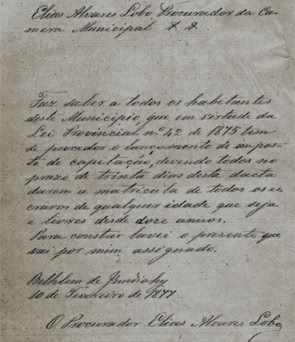 Elias Alvares Lobo Procurador da Ca-
mera Municipal &. &.
Faz saber a todos os habitantes
deste Municipio, que em virtude da
Lei Provincial nº 42 de 1875 tem
de proceder o lançamento do impos-
to de capitação, devendo todos no
prazo de trinta dias desta dacta
darem a matricula de todos os es-
cravos de qualquer idade que seja
e livres desde doze annos.
Para constar lavrei o presente que
vai por mim assignado.
Bethlem de Jundiahy
10 de Fevereiro de 1877
O Procurador Elias Alvares Lobo